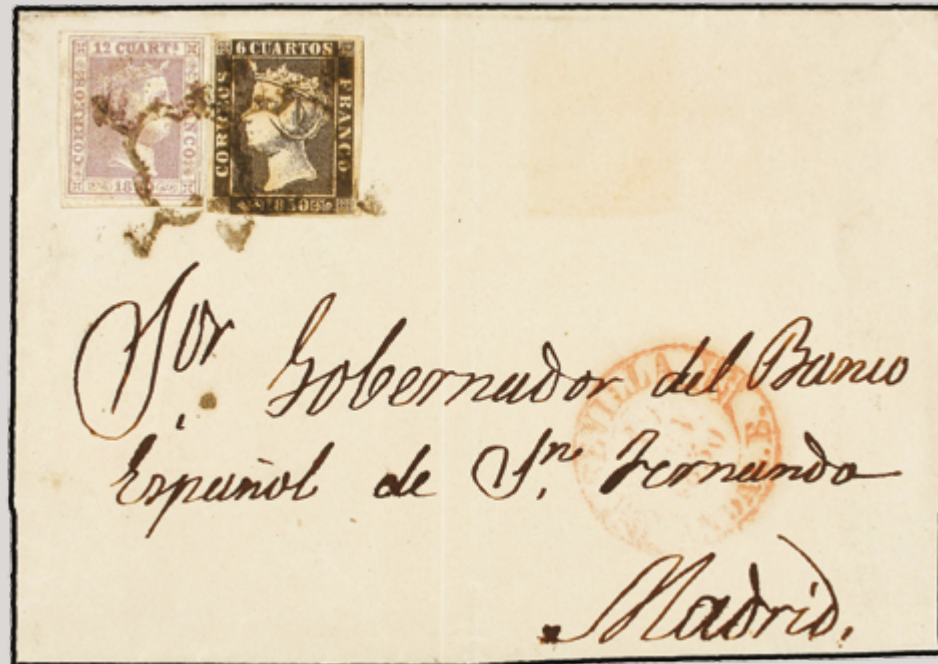 12 CUARTˢ
CORREOS
FRANCO
1850
6 CUARTOS
CORREOS
FRANCO
1850
Sor. Gobernador del Banco
Español de Sn. Fernando
Madrid.
SEVILLA
ANDAL.B.